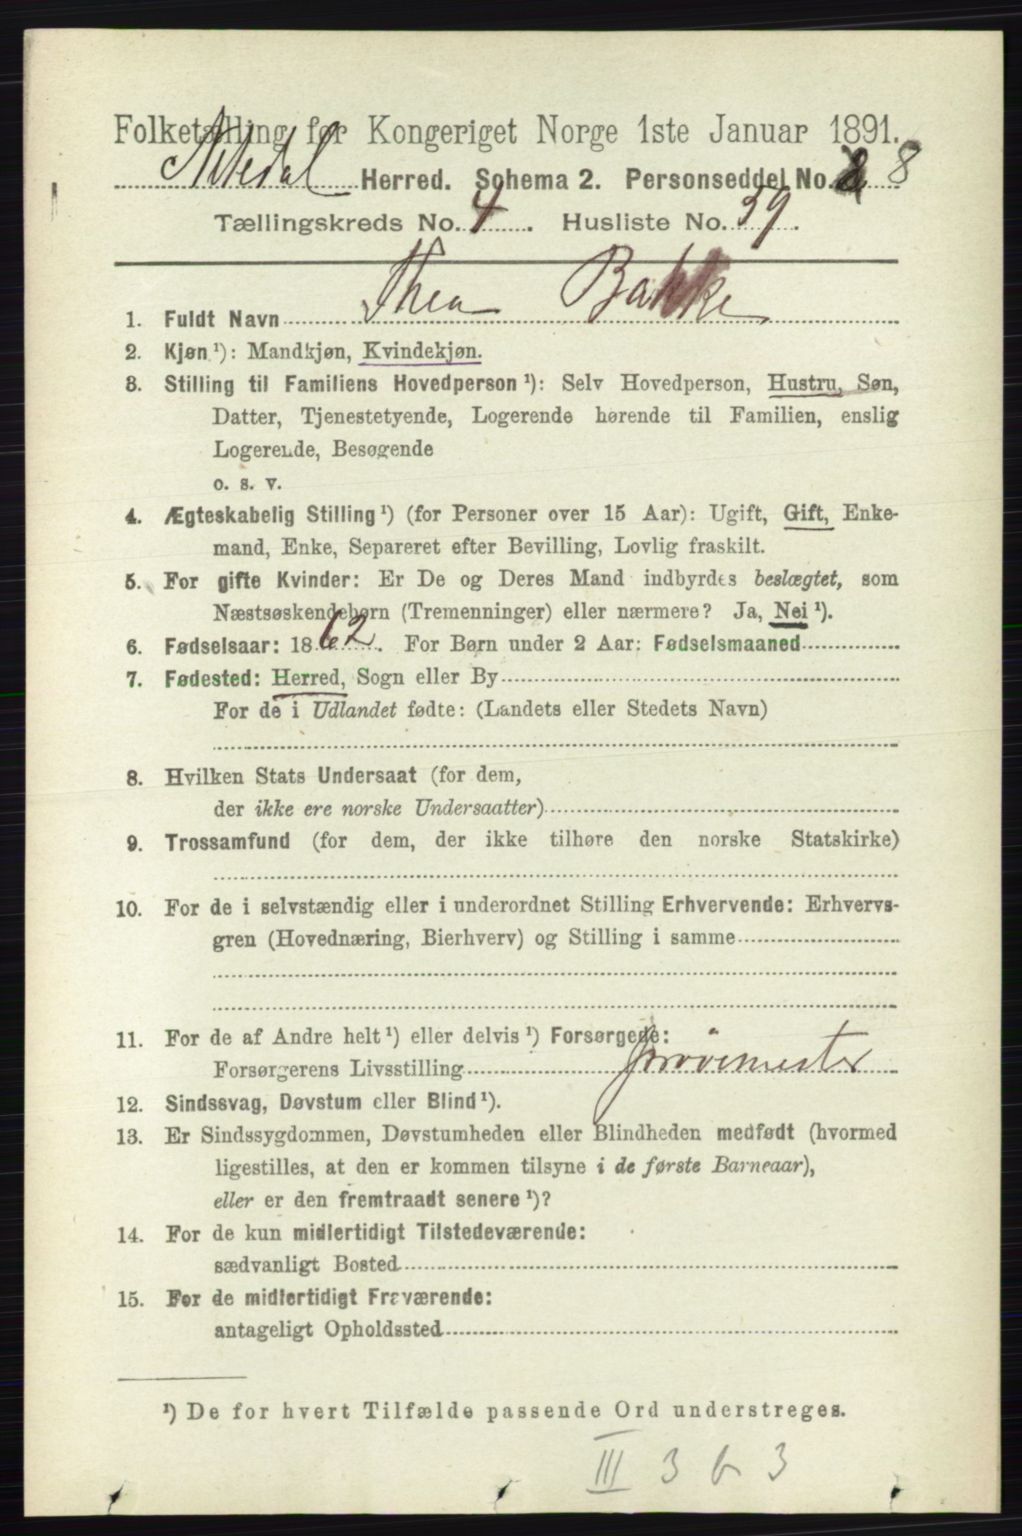 Folketælling for Kongeriget Norge 1ste Januar 1891.
Nitedal Herred. Schema 2. Personseddel No. 8
Tællingskreds No. 4. Husliste No. 39.
1. Fuldt Navn Thea Bakke
2. Kjøn ¹): Mandkjøn, Kvindekjøn.
3. Stilling til Familiens Hovedperson ¹): Selv Hovedperson, Hustru, Søn,
Datter, Tjenestetyende, Logerende hørende til Familien, enslig
Logerende, Besøgende
o. s. v.
4. Ægteskabelig Stilling ¹) (for Personer over 15 Aar): Ugift, Gift, Enke-
mand, Enke, Separeret efter Bevilling, Lovlig fraskilt.
5. For gifte Kvinder: Er De og Deres Mand indbyrdes beslægtet, som
Næstsøskendebørn (Tremenninger) eller nærmere? Ja, Nei ¹).
6. Fødselsaar: 1862. For Børn under 2 Aar: Fødselsmaaned
7. Fødested: Herred, Sogn eller By
For de i Udlandet fødte: (Landets eller Stedets Navn)
8. Hvilken Stats Undersaat (for dem,
der ikke ere norske Undersaatter)
9. Trossamfund (for dem, der ikke tilhøre den norske Statskirke)
10. For de i selvstændig eller i underordnet Stilling Erhvervende: Erhvervs-
gren (Hovednæring, Bierhverv) og Stilling i samme
11. For de af Andre helt ¹) eller delvis ¹) Forsørgede:
Forsørgerens Livsstilling
12. Sindssvag, Døvstum eller Blind ¹).
13. Er Sindssygdommen, Døvstumheden eller Blindheden medfødt (hvormed
ligestilles, at den er kommen tilsyne i de første Barneaar),
eller er den fremtraadt senere ¹)?
14. For de kun midlertidigt Tilstedeværende:
sædvanligt Bosted
15. For de midlertidigt Fraværende:
antageligt Opholdssted
¹) De for hvert Tilfælde passende Ord understreges.
III 363